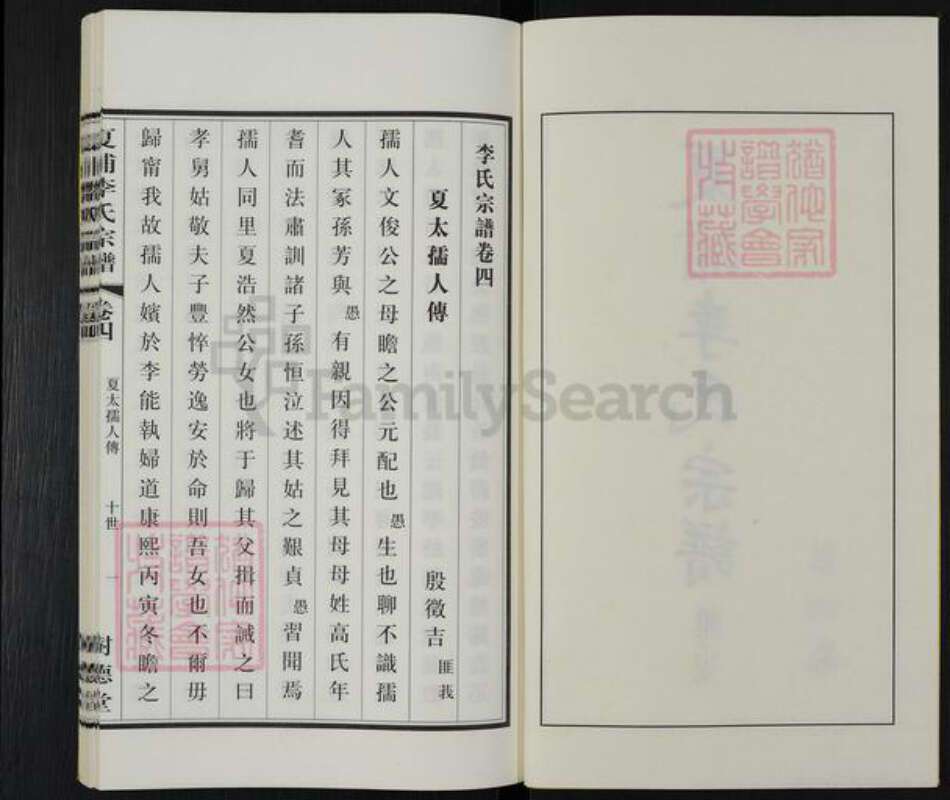 李氏宗譜卷四
夏太孺人傳
殷徵吉匪莪
孺人文俊公之母瞻之公元配也愚生也聊不識孺
人其冢孫芳與愚有親因得拜見其母母姓高氏年
耆而法肅訓諸子孫恒泣述其姑之艱貞愚習聞焉
孺人同里夏浩然公女也將于歸其父揖而誡之曰
孝舅姑敬夫子豐悴勞逸安於命則吾女也不爾毋
歸甯我故孺人嬪於李能執婦道康熙丙寅冬瞻之
夏浦李氏宗譜
卷四
夏太孺人傳
十世
一
樹德堂
FamilySearch